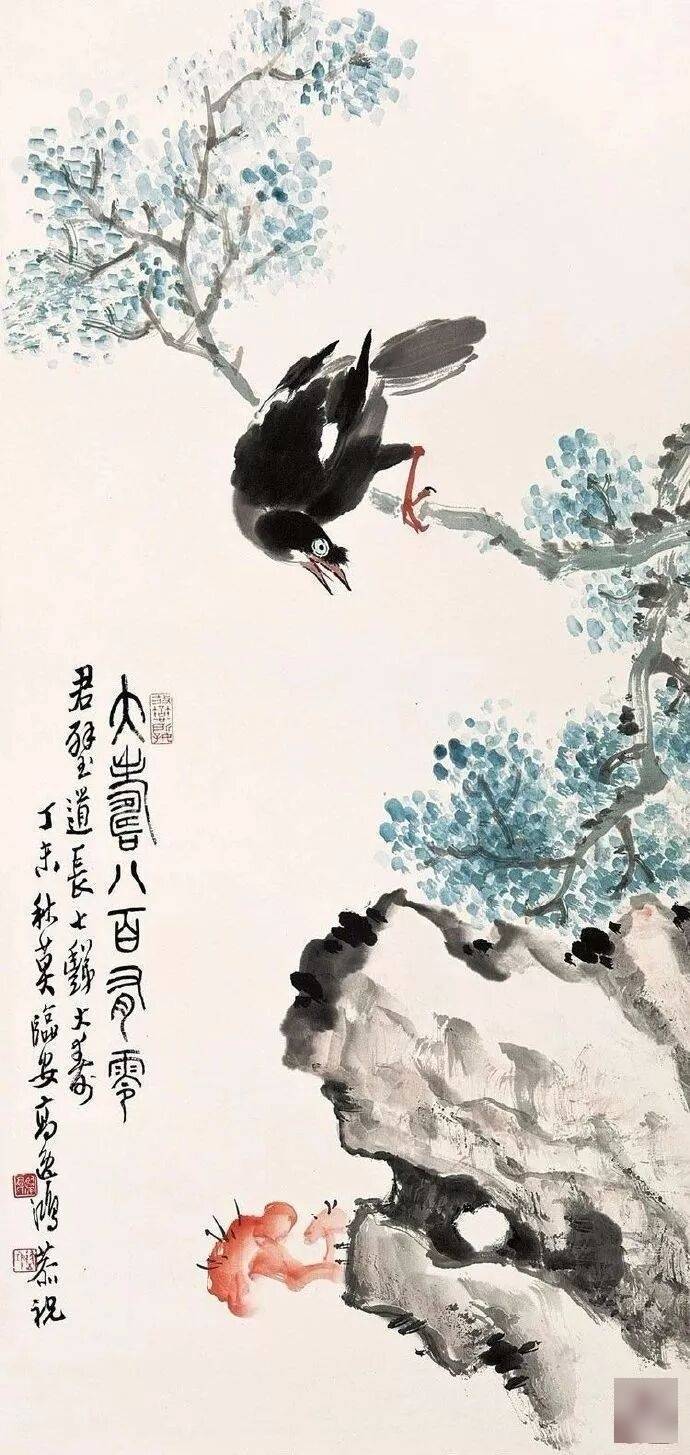 大壽八百有零
君璧道長七豑大壽
丁未秋莫臨安高逸鴻恭祝